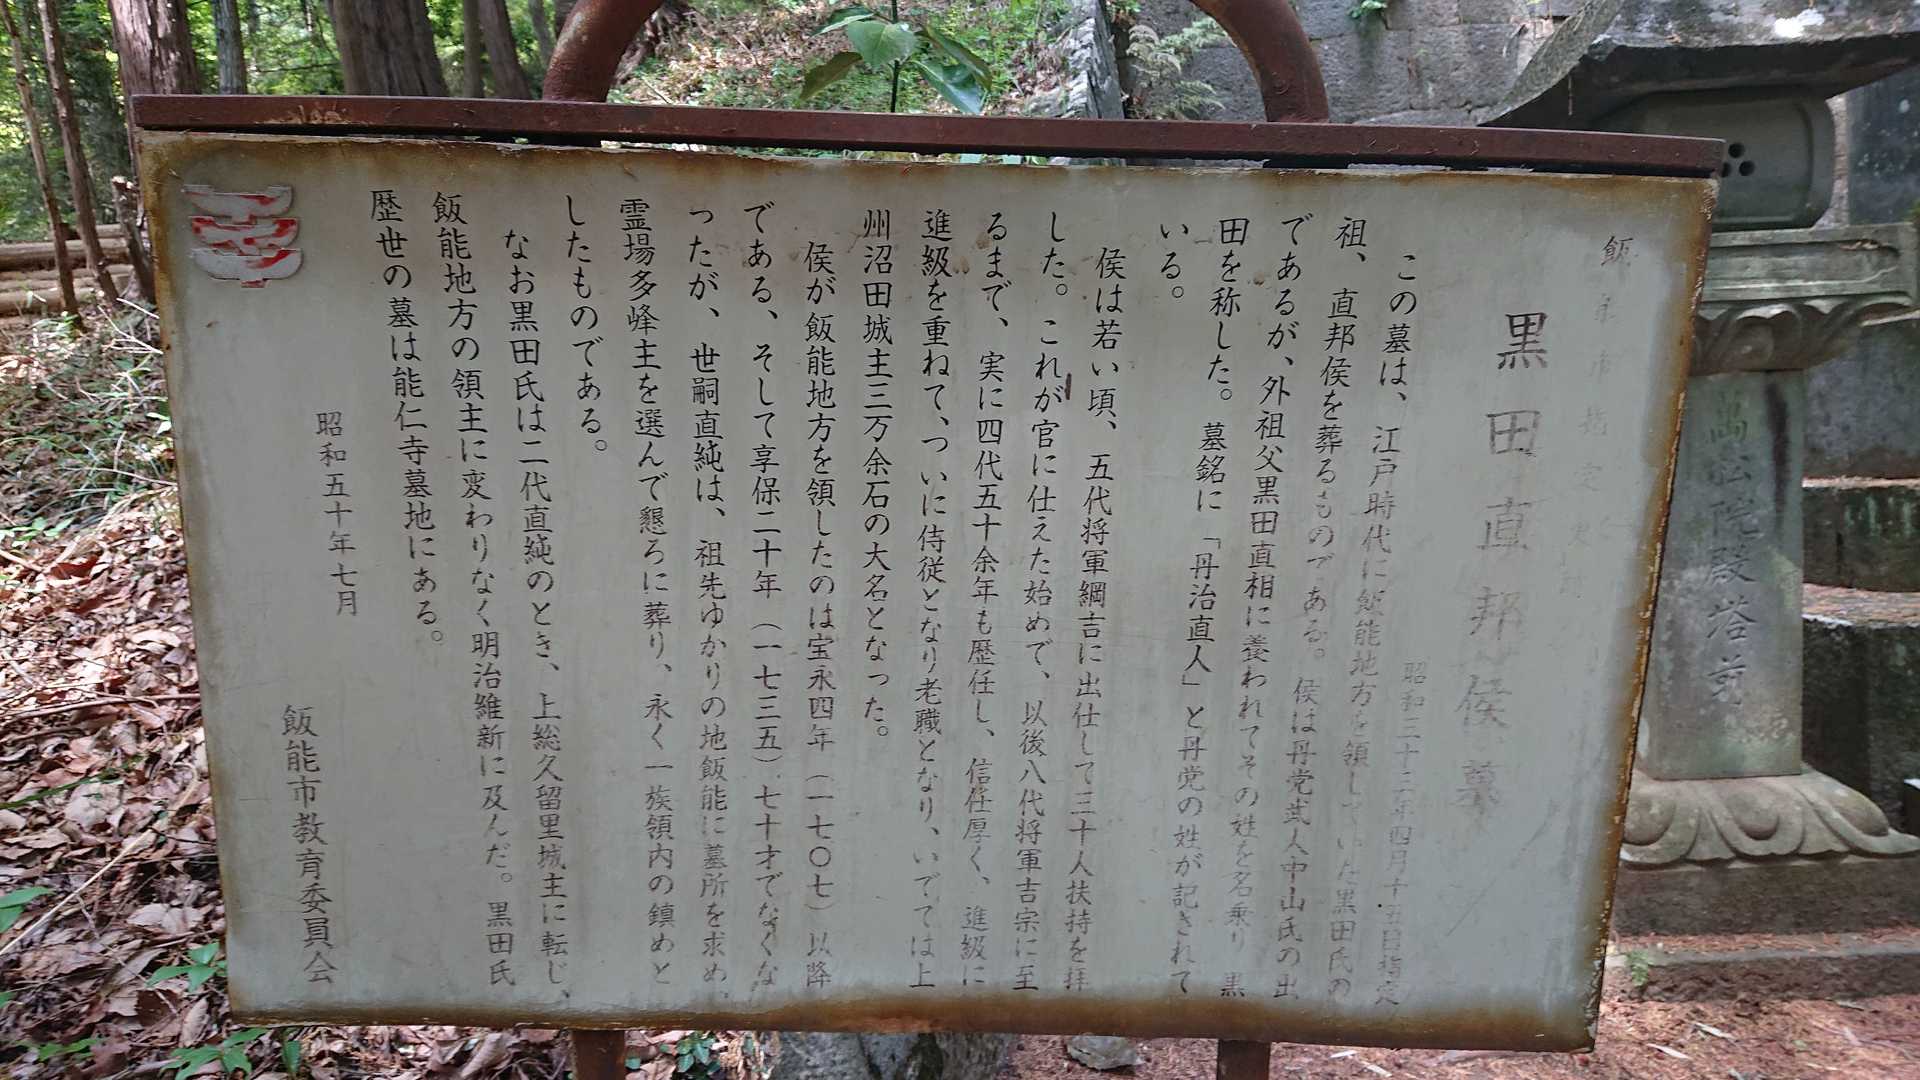 飯能市指定史跡
黒田直邦侯墓
昭和三十二年四月十五日指定
この墓は、江戸時代に飯能地方を領していた黒田氏の
祖、直邦侯を葬るものである。侯は丹党武人中山氏の出
であるが、外祖父黒田直相に養われてその姓を名乗り黒
田を称した。墓銘に「丹治直人」と丹党の姓が記されて
いる。
侯は若い頃、五代将軍綱吉に出仕して三十人扶持を拝
した。これが官に仕えた始めで、以後八代将軍吉宗に至
るまで、実に四代五十余年も歴任し、信任厚く、進級に
進級を重ねて、ついに侍従となり老職となり、いでては上
州沼田城主三万余石の大名となった。
侯が飯能地方を領したのは宝永四年（一七〇七）以降
である、そして享保二十年（一七三五）七十才でなくな
ったが、世嗣直純は、祖先ゆかりの地飯能に墓所を求め、
霊場多峰主を選んで懇ろに葬り、永く一族領内の鎮めと
したものである。
なお黒田氏は二代直純のとき、上総久留里城主に転じ、
飯能地方の領主に変わりなく明治維新に及んだ。黒田氏
歴世の墓は能仁寺墓地にある。
昭和五十年七月
飯能市教育委員会
院殿塔前